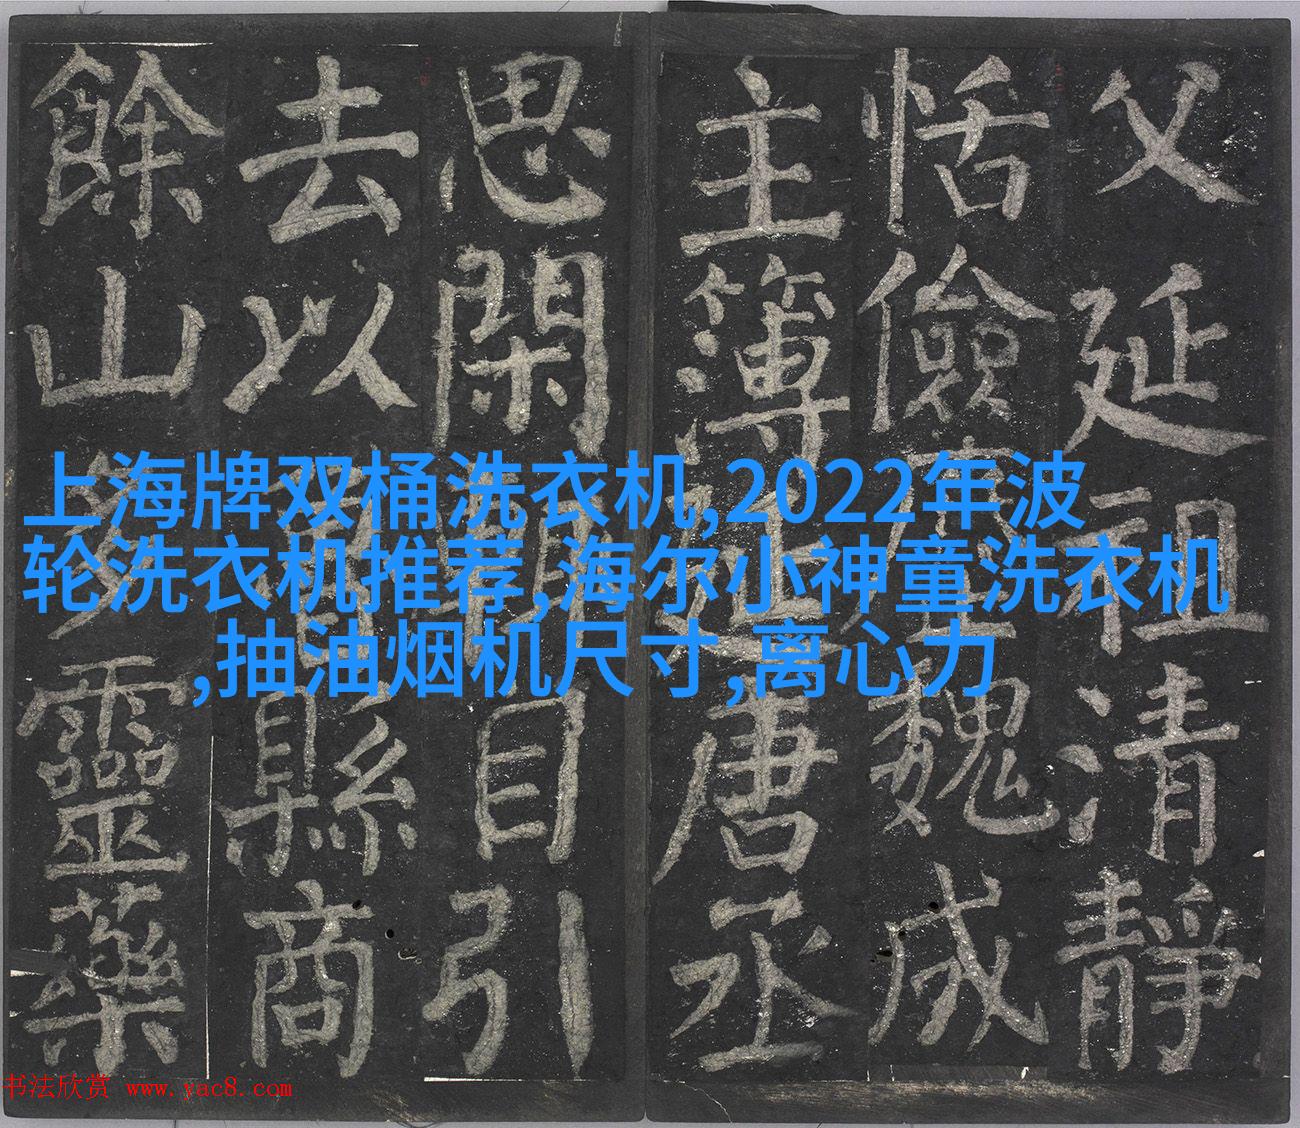 父延祖清靜
恬儉魏成
主簿延唐丞
思閑自引
去以縣商
餘山多靈藥
上海牌双桶洗衣机,2022年波
轮洗衣机推荐,海尔小神童洗衣机
,抽油烟机尺寸,离心力
书法欣赏 www.yac8.com